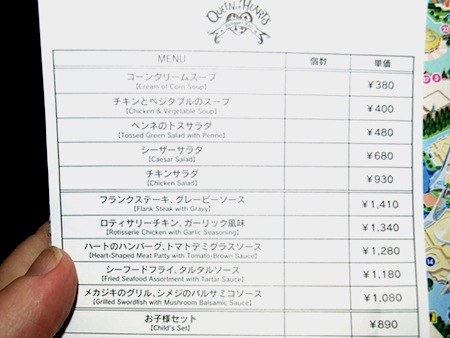 QUEEN of HEARTS
MENU 個数 単価
コーンクリームスープ ¥380
【Cream of Corn Soup】
チキンとベジタブルのスープ ¥400
【Chicken & Vegetable Soup】
ペンネのトスサラダ ¥480
【Tossed Green Salad with Penne】
シーザーサラダ ¥680
【Caesar Salad】
チキンサラダ ¥930
【Chicken Salad】
フランクステーキ、グレービーソース ¥1,410
【Flank Steak with Gravy】
ロティサリーチキン、ガーリック風味 ¥1,340
【Rotisserie Chicken with Garlic Seasoning】
ハートのハンバーグ、トマトデミグラスソース ¥1,280
【Heart-Shaped Meat Patty with Tomato-Brown Sauce】
シーフードフライ、タルタルソース ¥1,180
【Fried Seafood Assortment with Tartar Sauce】
メカジキのグリル、シメジのバルサミコソース ¥1,080
【Grilled Swordfish with Mushroom Balsamic Sauce】
お子様セット ¥890
【Child's Set】